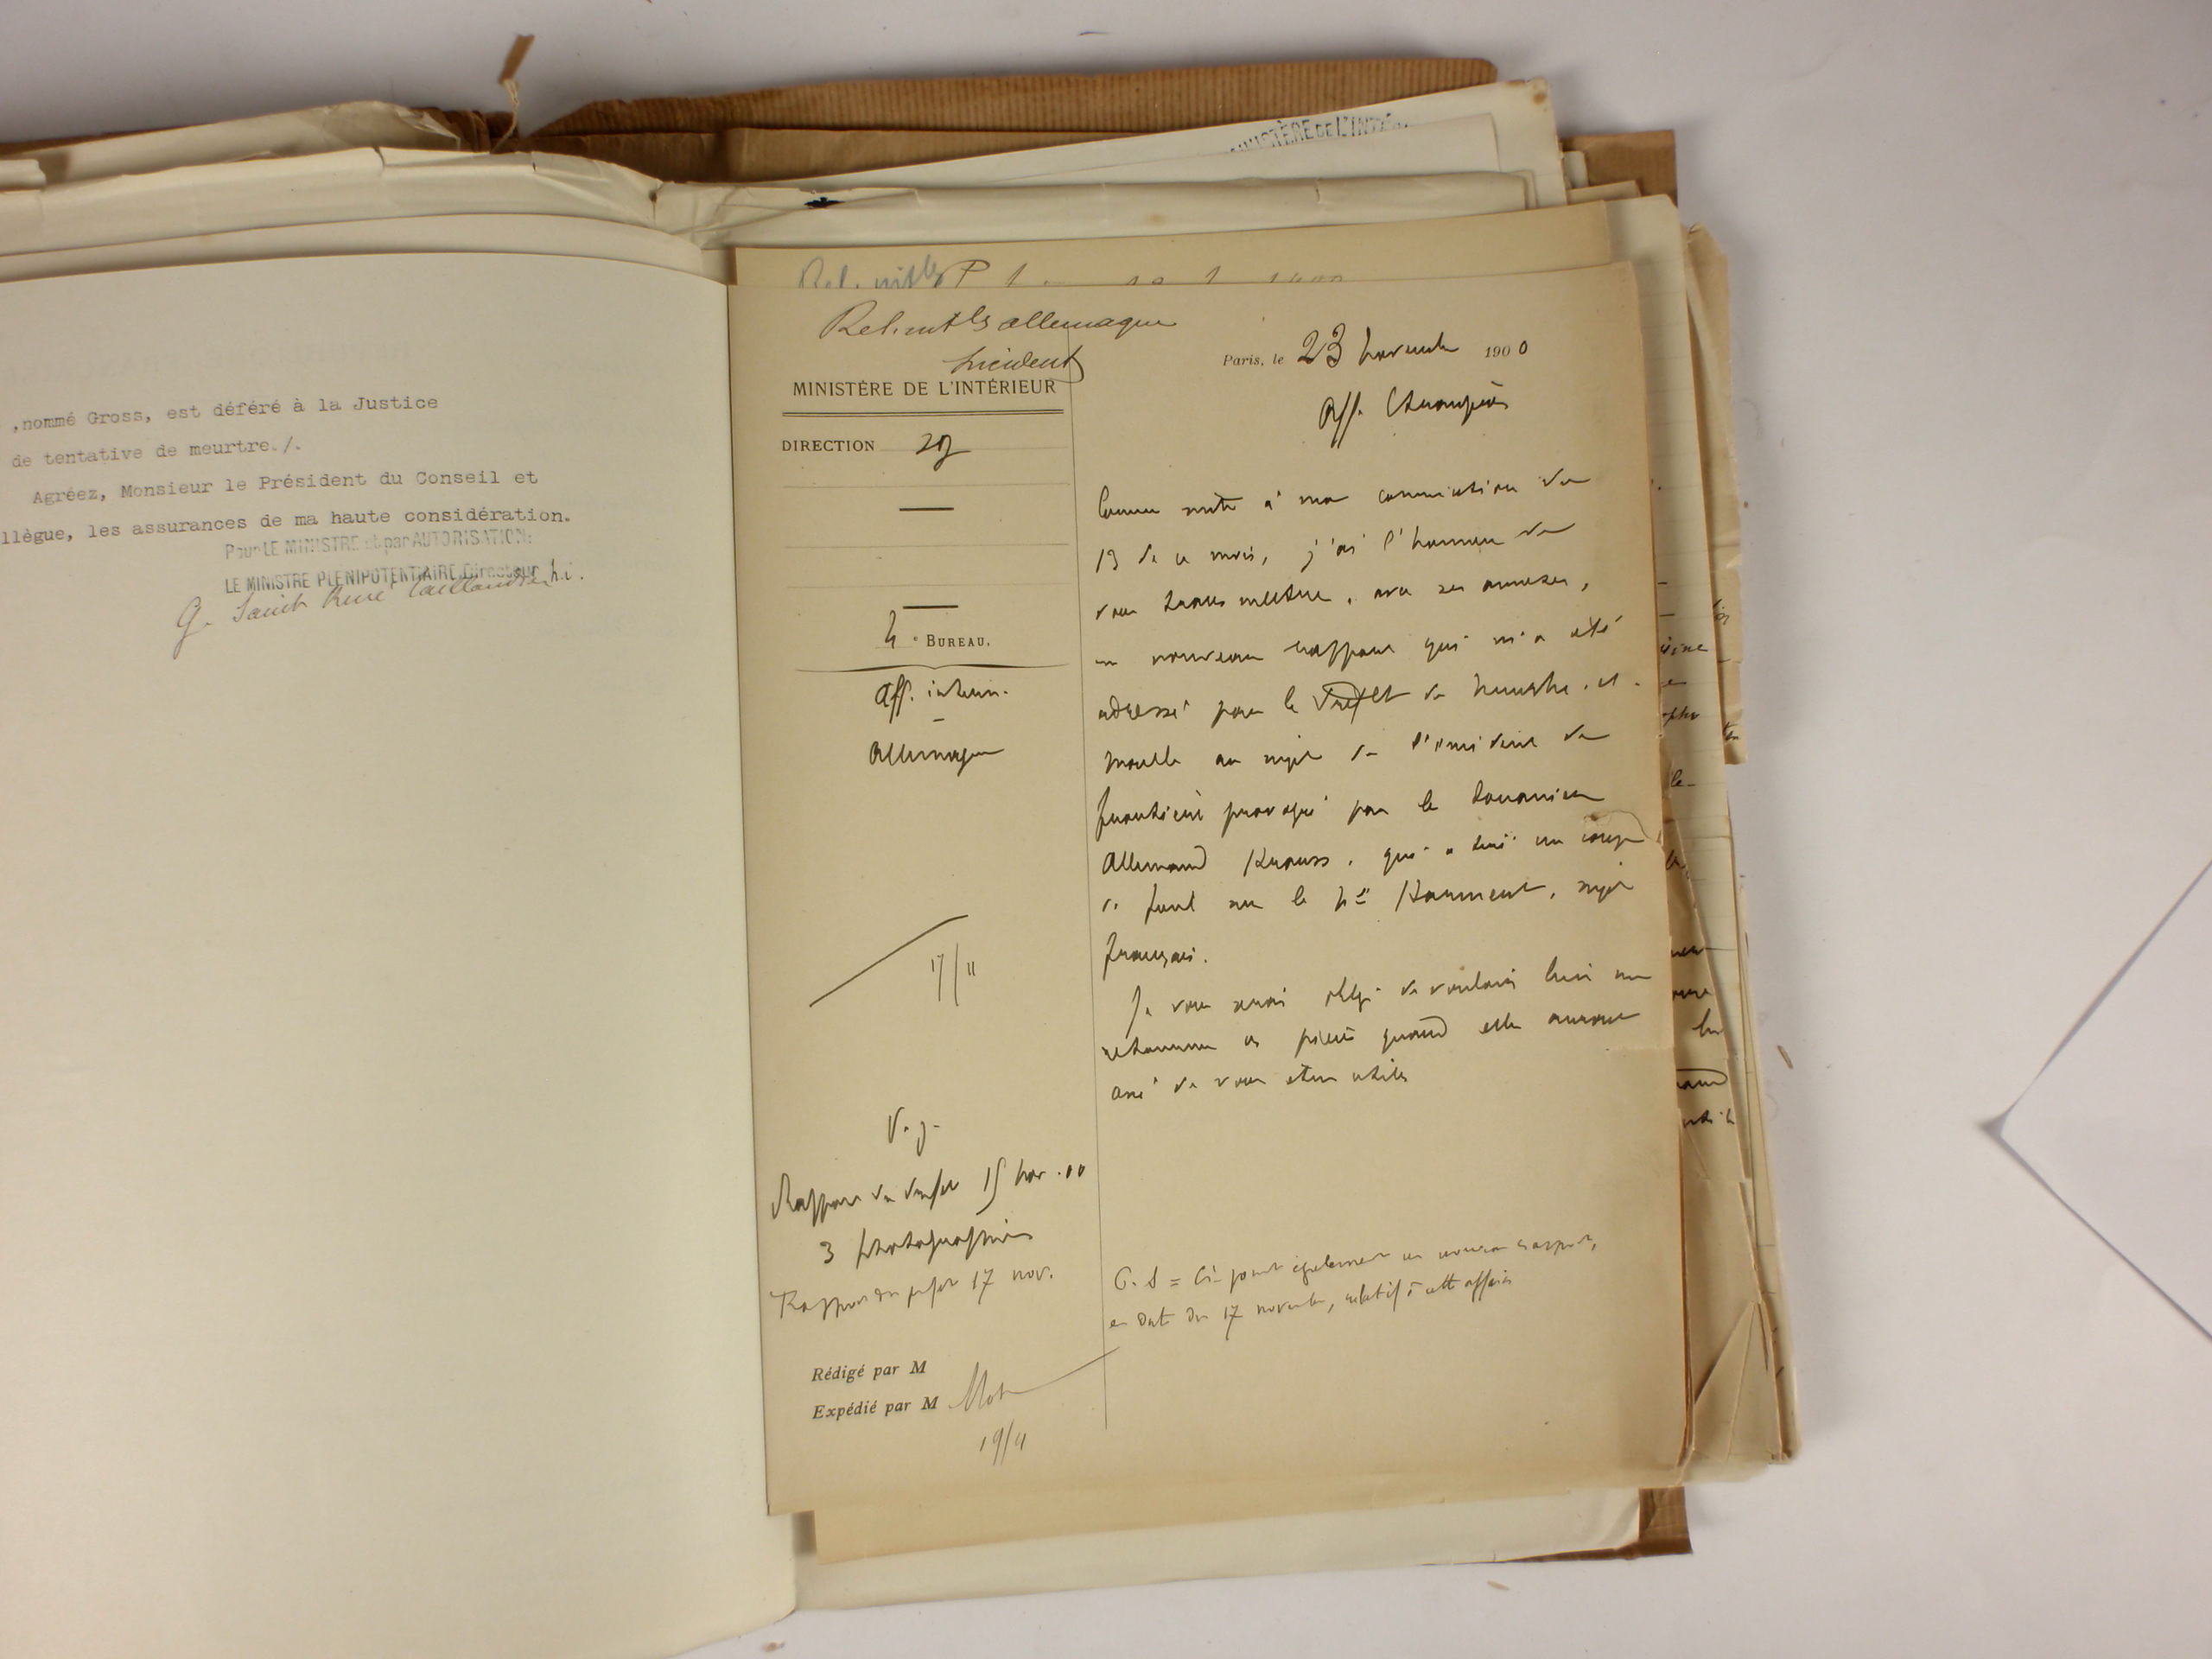 ,nommé Gross, est déféré à la Justice
de tentative de meurtre./.
Agréez, Monsieur le Président du Conseil et
llègue, les assurances de ma haute considération.
Pour LE MINISTRE et par AUTORISATION:
LE MINISTRE PLENIPOTENTIAIRE Directeur
G. Saint René Taillandier
MINISTÈRE DE L'INTÉ
Rel. intles
Rel. intles allemagne
Incident
MINISTÈRE DE L'INTÉRIEUR
DIRECTION
4e BUREAU.
Aff. intern.
Allemagne
17/11
V. J.
Rapport du Préfet 15 nov. 00
3 photographies
Rapport du préfet 17 nov.
Rédigé par M
Expédié par M
19/11
Paris, le 23 novembre 1900
Aff. Etrangères
Comme suite à ma communication du
13 de ce mois, j'ai l'honneur de
vous transmettre, avec ses annexes,
un nouveau rapport qui m'a été
adressé par le Préfet de Meurthe-et-
Moselle au sujet de l'incident de
frontière provoqué par le douanier
Allemand Krauss, qui a tiré un coup
de feu sur le né Harment, sujet
français.
Je vous serai obligé de vouloir bien me
retourner ces pièces quand elles auront
cessé de vous être utiles
P. S = Ci-joint également un nouveau rapport,
en date du 17 novembre, relatif à cette affaire